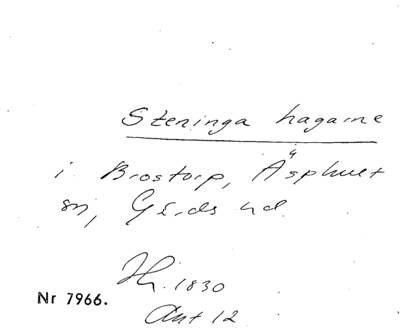 Steninga hagarne
i Brostorp, Äsphult
sn, Gärds hd.
1830
Nr 7966.
Akt 12